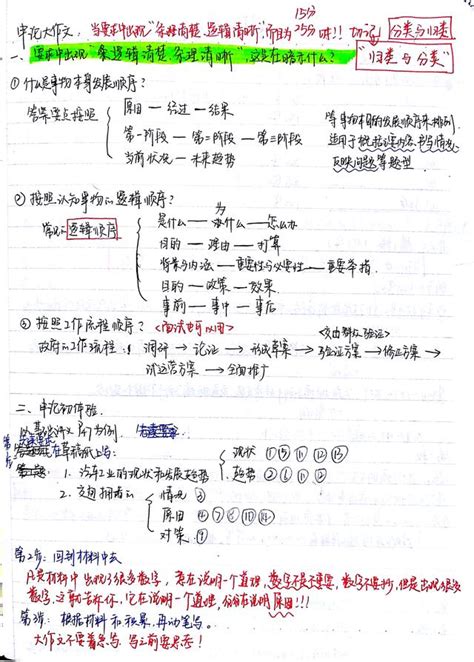 15分
申论大作文,当要求中出现"条理清楚,逻辑清晰",即为25分时!! 切记 分类与归类
一、要求中出现"逻辑清楚,条理清晰",这是在暗示什么? "归类与分类"
① 什么是事物本身发展顺序?
答案要点按照
原因—经过—结果
第一阶段—第二阶段—第三阶段
当前状况—未来趋势
等事物本身的发展顺序来排列
适用于概括
反映问题等题型
② 按照认知事物的逻辑顺序?
常见的逻辑顺序
是什么—为什么—怎么办
目的—理由—打算
背景与内涵—重要性与必要性—重要举措
目的—政策—效果
事前—事中—事后
③ 按照工作流程顺序? <面试也可以用>
政府的工作流程: 调研→论证→形成草案→验证方案→修正方案→
<交由群众验证>
试运营方案→全面推广
二、申论初体验
在草稿纸上写:
1. 汽车工业的现状和发展趋势
现状
趋势
2. 交通拥堵的
情况
原因
对策
第2步:回到材料中去
凡是材料中出现了很多数字,旨在说明一个道理,数字不是重要,数字不要抄,但是出现很多
数字,这就告诉你,它在说明一个道理,分析在说明原因!!!
第3步:根据材料和效果,再动笔写。
大作文不要着急写,写之前要思考!